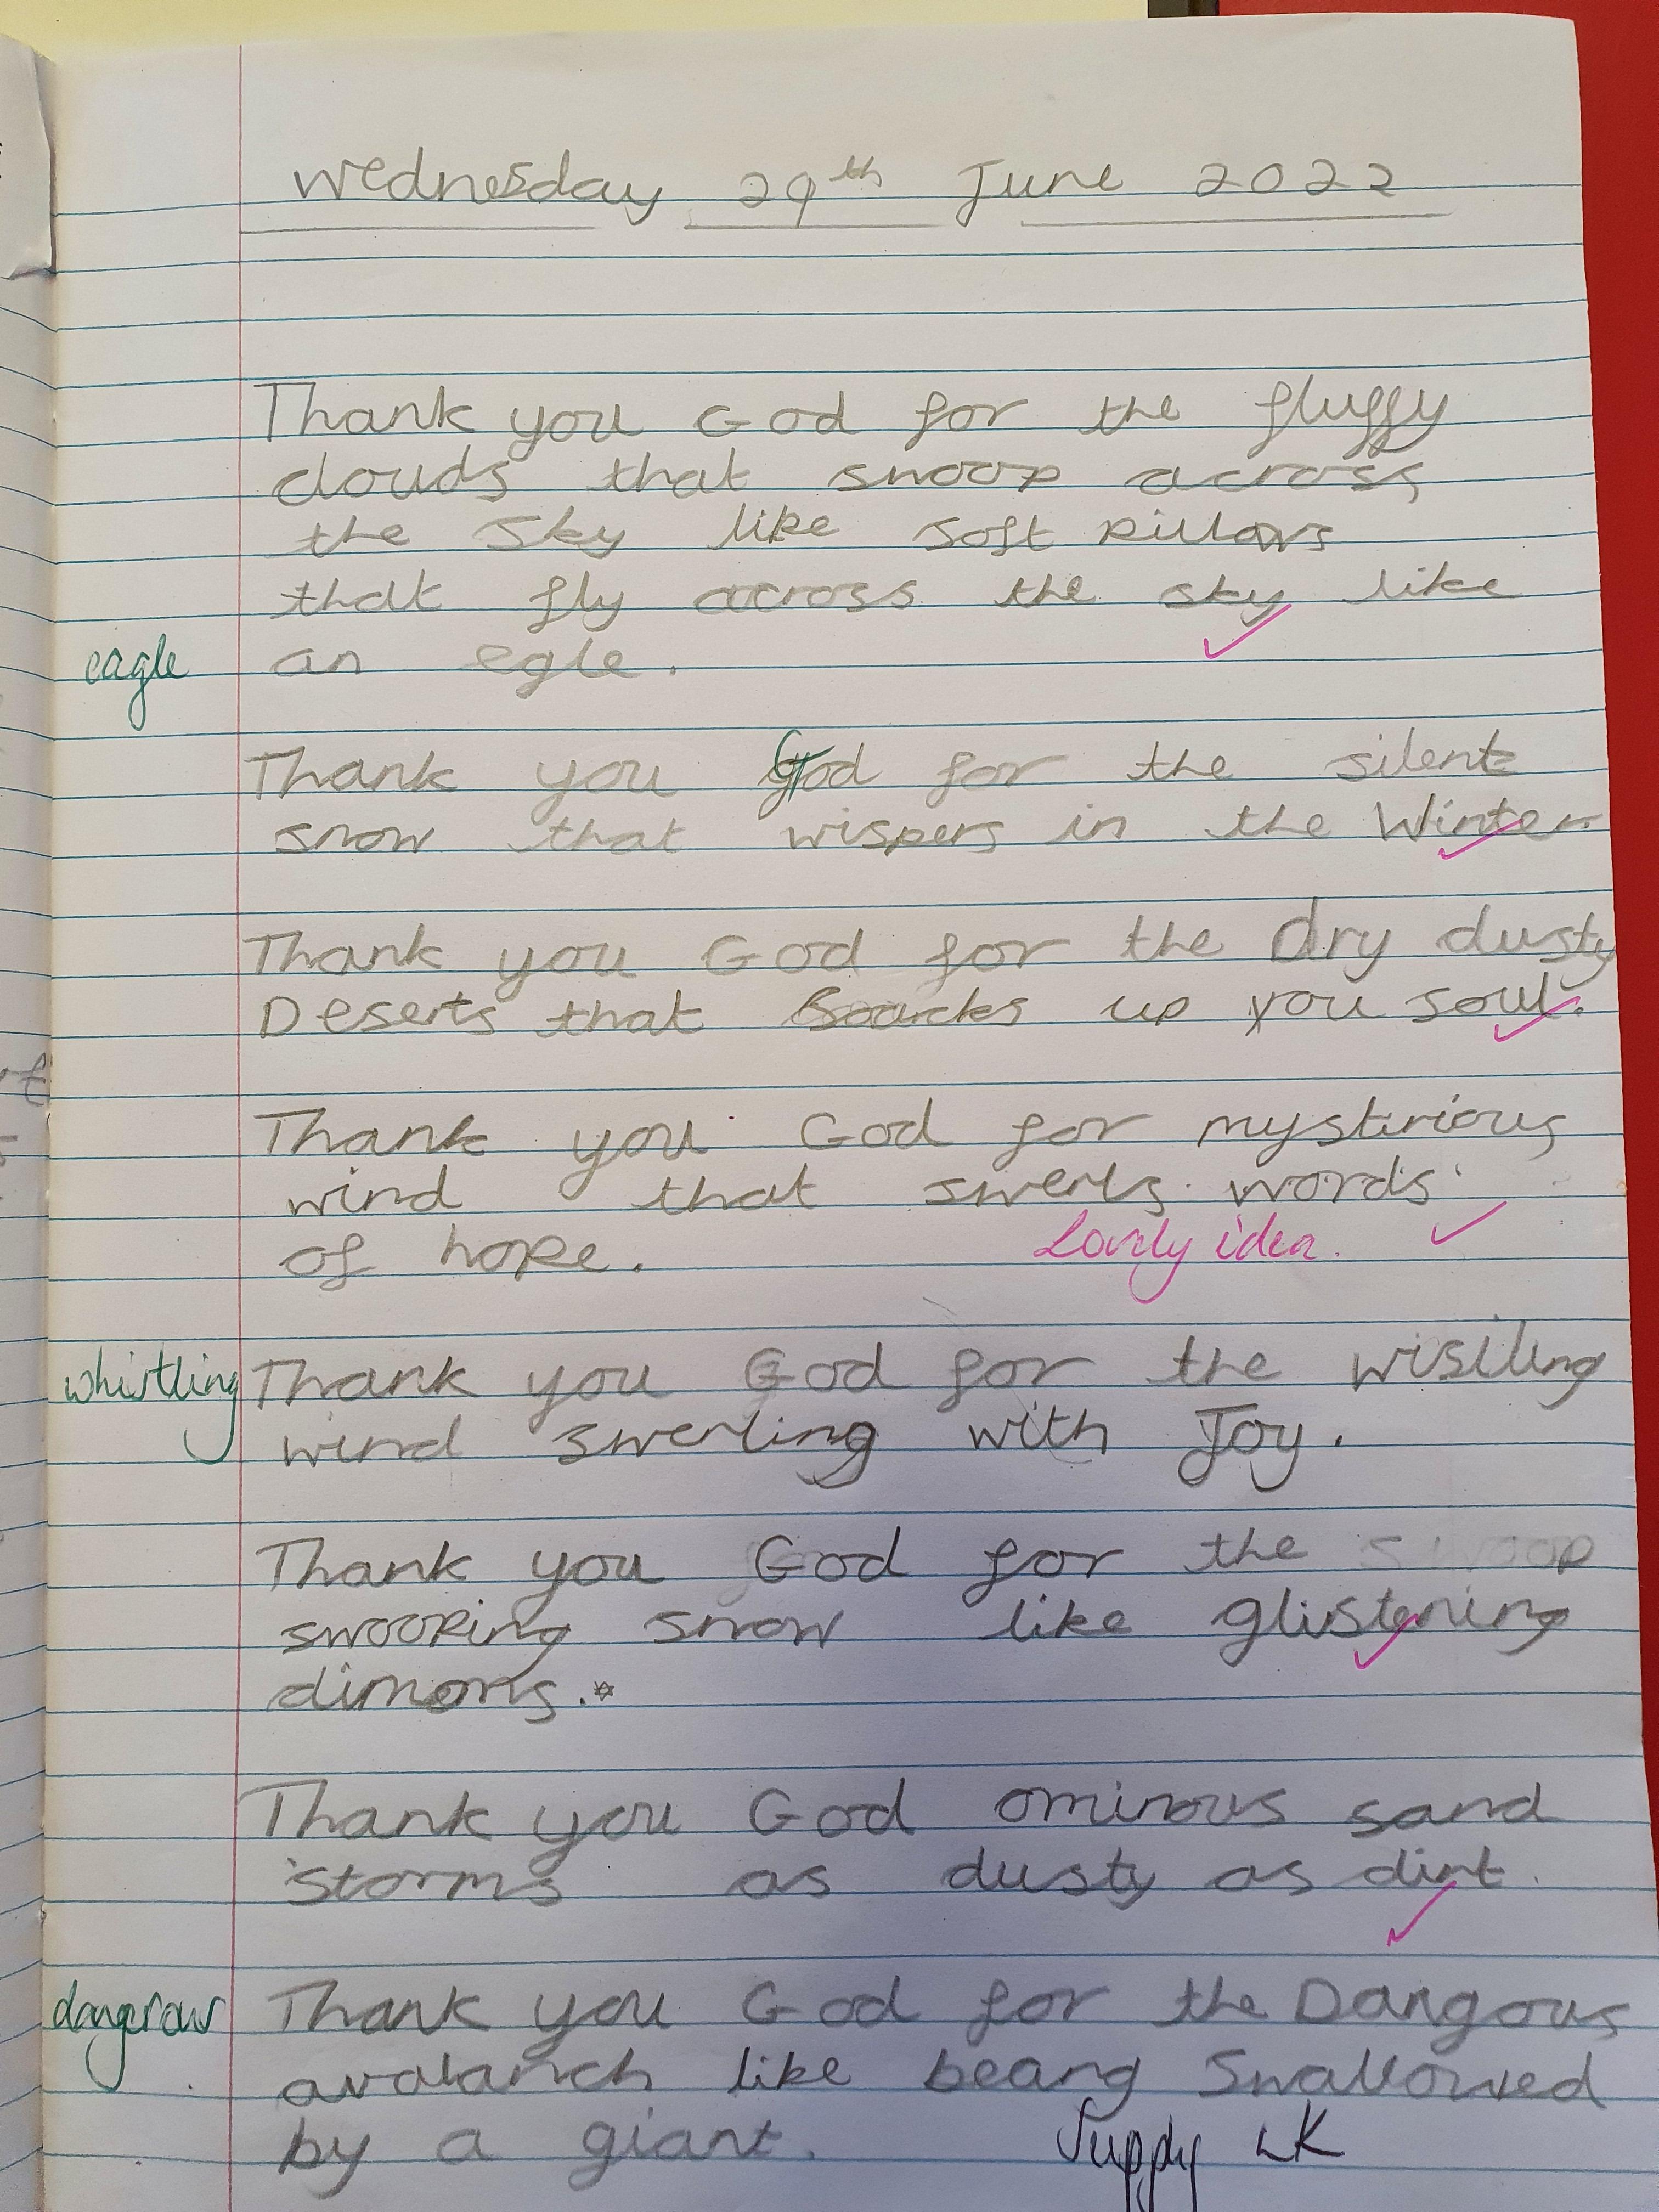 Wednesday 29th June 2022
Thank you God for the fluffy
clouds that snoop across
the sky like soft pillows
that fly across the sky like
eagle an egle.
Thank you God for the silent
snow that wispers in the Winter.
Thank you God for the Dry dusty
Deserts that up you soul.
Thank you God for mystirious
wind that swerls words
of hope. Lovely idea.
whistling Thank you God for the wisiling
wind swerling with Joy.
Thank you God for the swoop
swooping snow like glistening
dimons.*
Thank you God ominous sand
storms as dusty as dirt.
dangerous Thank you God for the Dangous
avalanch like beang Swallowed
by a giant. Supply LK